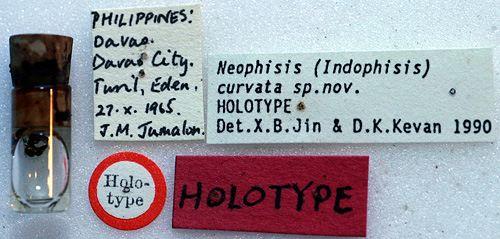 PHILIPPINES:
Davao.
Davao City.
Tunil, Eden.
27. x. 1965.
J.M. Jumalon.
Neophisis (Indophisis)
curvata sp.nov.
HOLOTYPE
Det.X.B.Jin & D.K.Kevan 1990
Holo-
type
HOLOTYPE